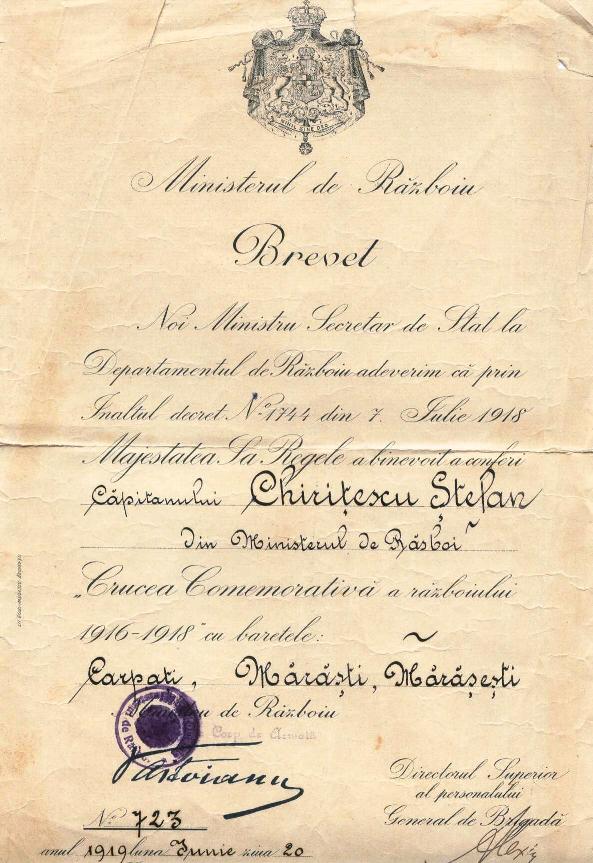 NIHIL SINE DEO
Ministerul de Războiu
Brevet
Noi Ministru Secretar de Stat la
Departamentul de Războiu adeverim că prin
Inaltul decret No. 1744 din 7. Iulie 1918
Majestatea Sa Regele a binevoit a conferi
Căpitanului Chirițescu Ștefan
din Ministerul de Răsboi
„Crucea Comemorativă a războiului
1916-1918" cu baretele:
Carpați, Mărăști, Mărășești
Ministru de Războiu
Corp de Armată
Directorul Superior
al personalului
General de Brigadă
No. 723
anul 1919 luna Iunie ziua 20